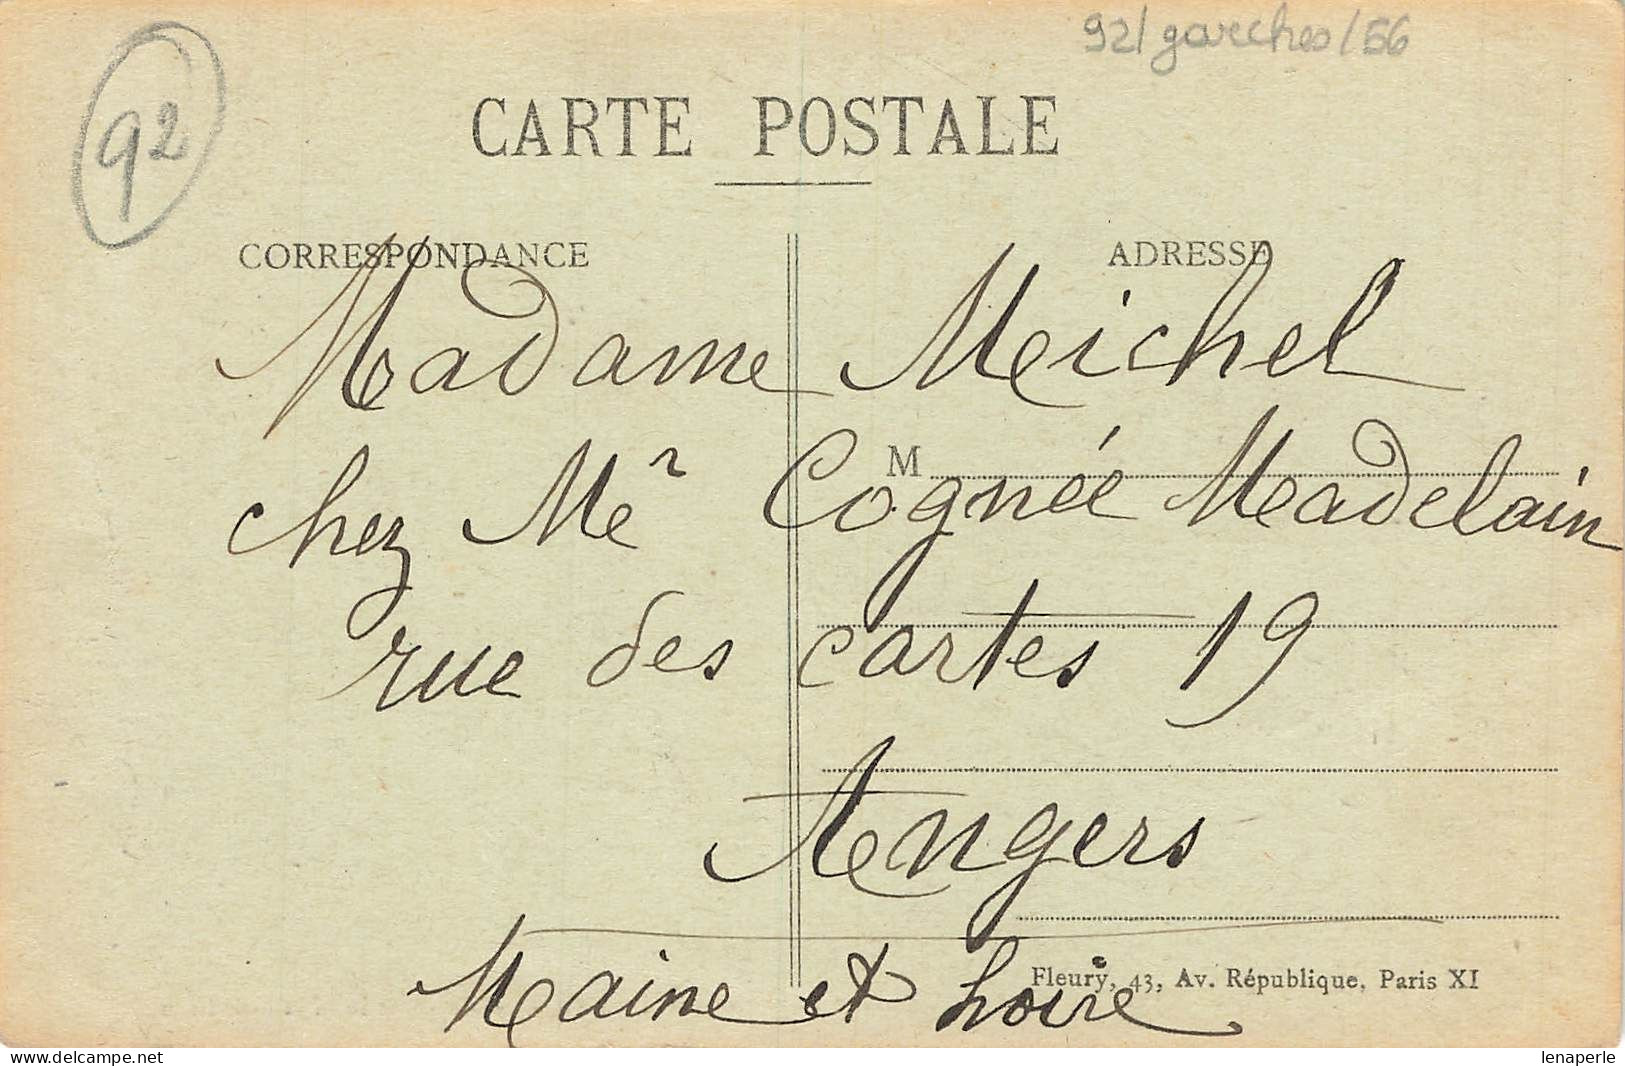 92
92/garches/56
CARTE POSTALE
CORRESPONDANCE
ADRESSE
Madame Michel
M
chez Mr Cognée Madelain
rue des cartes 19
Angers
Maine et Loire
Fleury, 43, Av. République, Paris XI
lenaperle